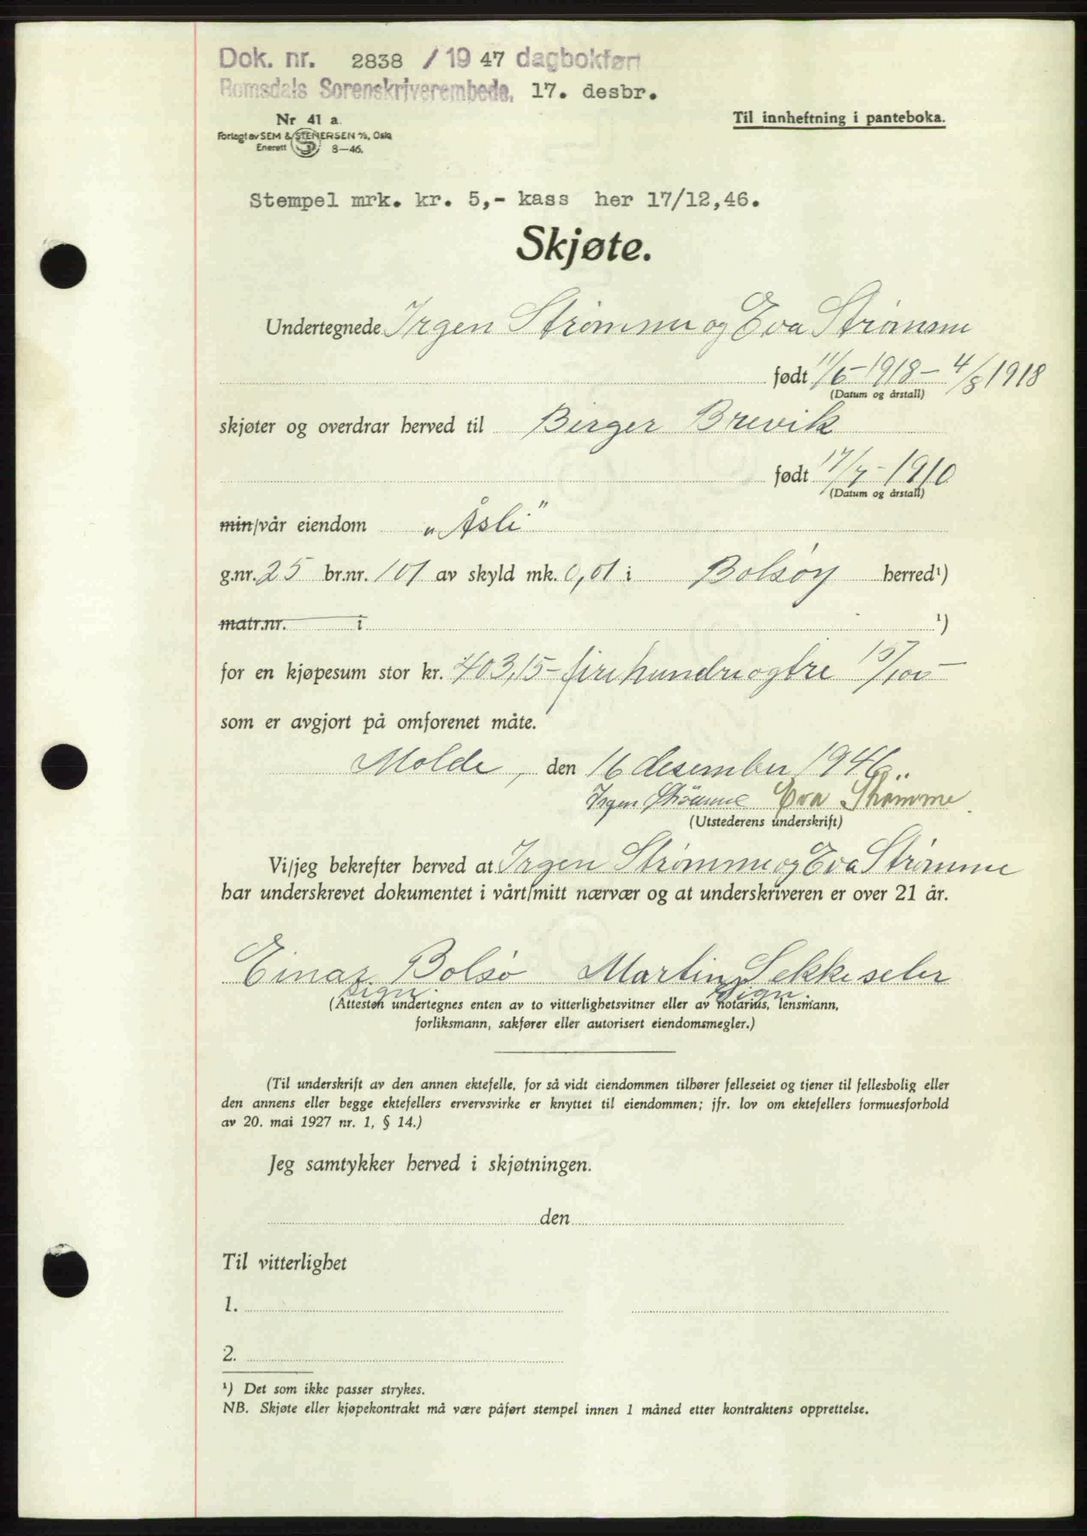 Dok. nr. 2838 / 19 47 dagbokført
Romsdals Sorenskriverembede, 17. desbr.
Nr 41 a
Forlagt av SEM & STENERSEN A/S, Oslo
Enerett 8-46.
Til innheftning i panteboka.
Stempel mrk. kr. 5,- kass her 17/12,46.
Skjøte.
Undertegnede Irgen Strømme og Eva Strømme
født 11/6-1918 - 4/8 1918
(Datum og årstall)
skjøter og overdrar herved til Birger Brevik
født 17/7-1910
(Datum og årstall)
min/vår eiendom "Åsli"
g.nr. 25 br.nr. 101 av skyld mk. 0,01 i Bolsøy herred¹)
matr.nr. i ¹)
for en kjøpesum stor kr. 403,15 - fire hundre og tre 15/100 -
som er avgjort på omforenet måte.
Molde, den 16 desember 1946..
Irgen Strømme Eva Strømme.
(Utstederens underskrift)
Vi/jeg bekrefter herved at Irgen Strømme og Eva Strømme
har underskrevet dokumentet i vårt/mitt nærvær og at underskriveren er over 21 år.
Einar Bolsø Martin Sekkeseter
sign. sign.
(Attesten undertegnes enten av to vitterlighetsvitner eller av notarius, lensmann,
forliksmann, sakfører eller autorisert eiendomsmegler.)
(Til underskrift av den annen ektefelle, for så vidt eiendommen tilhører felleseiet og tjener til fellesbolig eller
den annens eller begge ektefellers ervervsvirke er knyttet til eiendommen; jfr. lov om ektefellers formuesforhold
av 20. mai 1927 nr. 1, § 14.)
Jeg samtykker herved i skjøtningen.
den
Til vitterlighet
1.
2.
¹) Det som ikke passer strykes.
NB. Skjøte eller kjøpekontrakt må være påført stempel innen 1 måned etter kontraktens opprettelse.